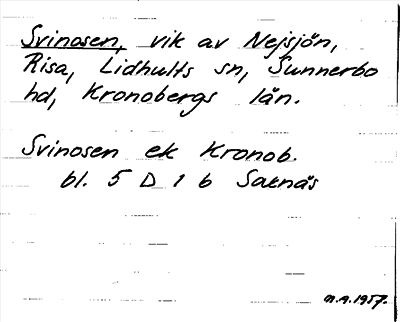 Svinosen, vik av Nejsjön,
Risa, Lidhults sn, Sunnerbo
hd, Kronobergs län.
Svinosen ek Kronob.
bl. 5 D 1 b Saxnäs
n.a. 1957.